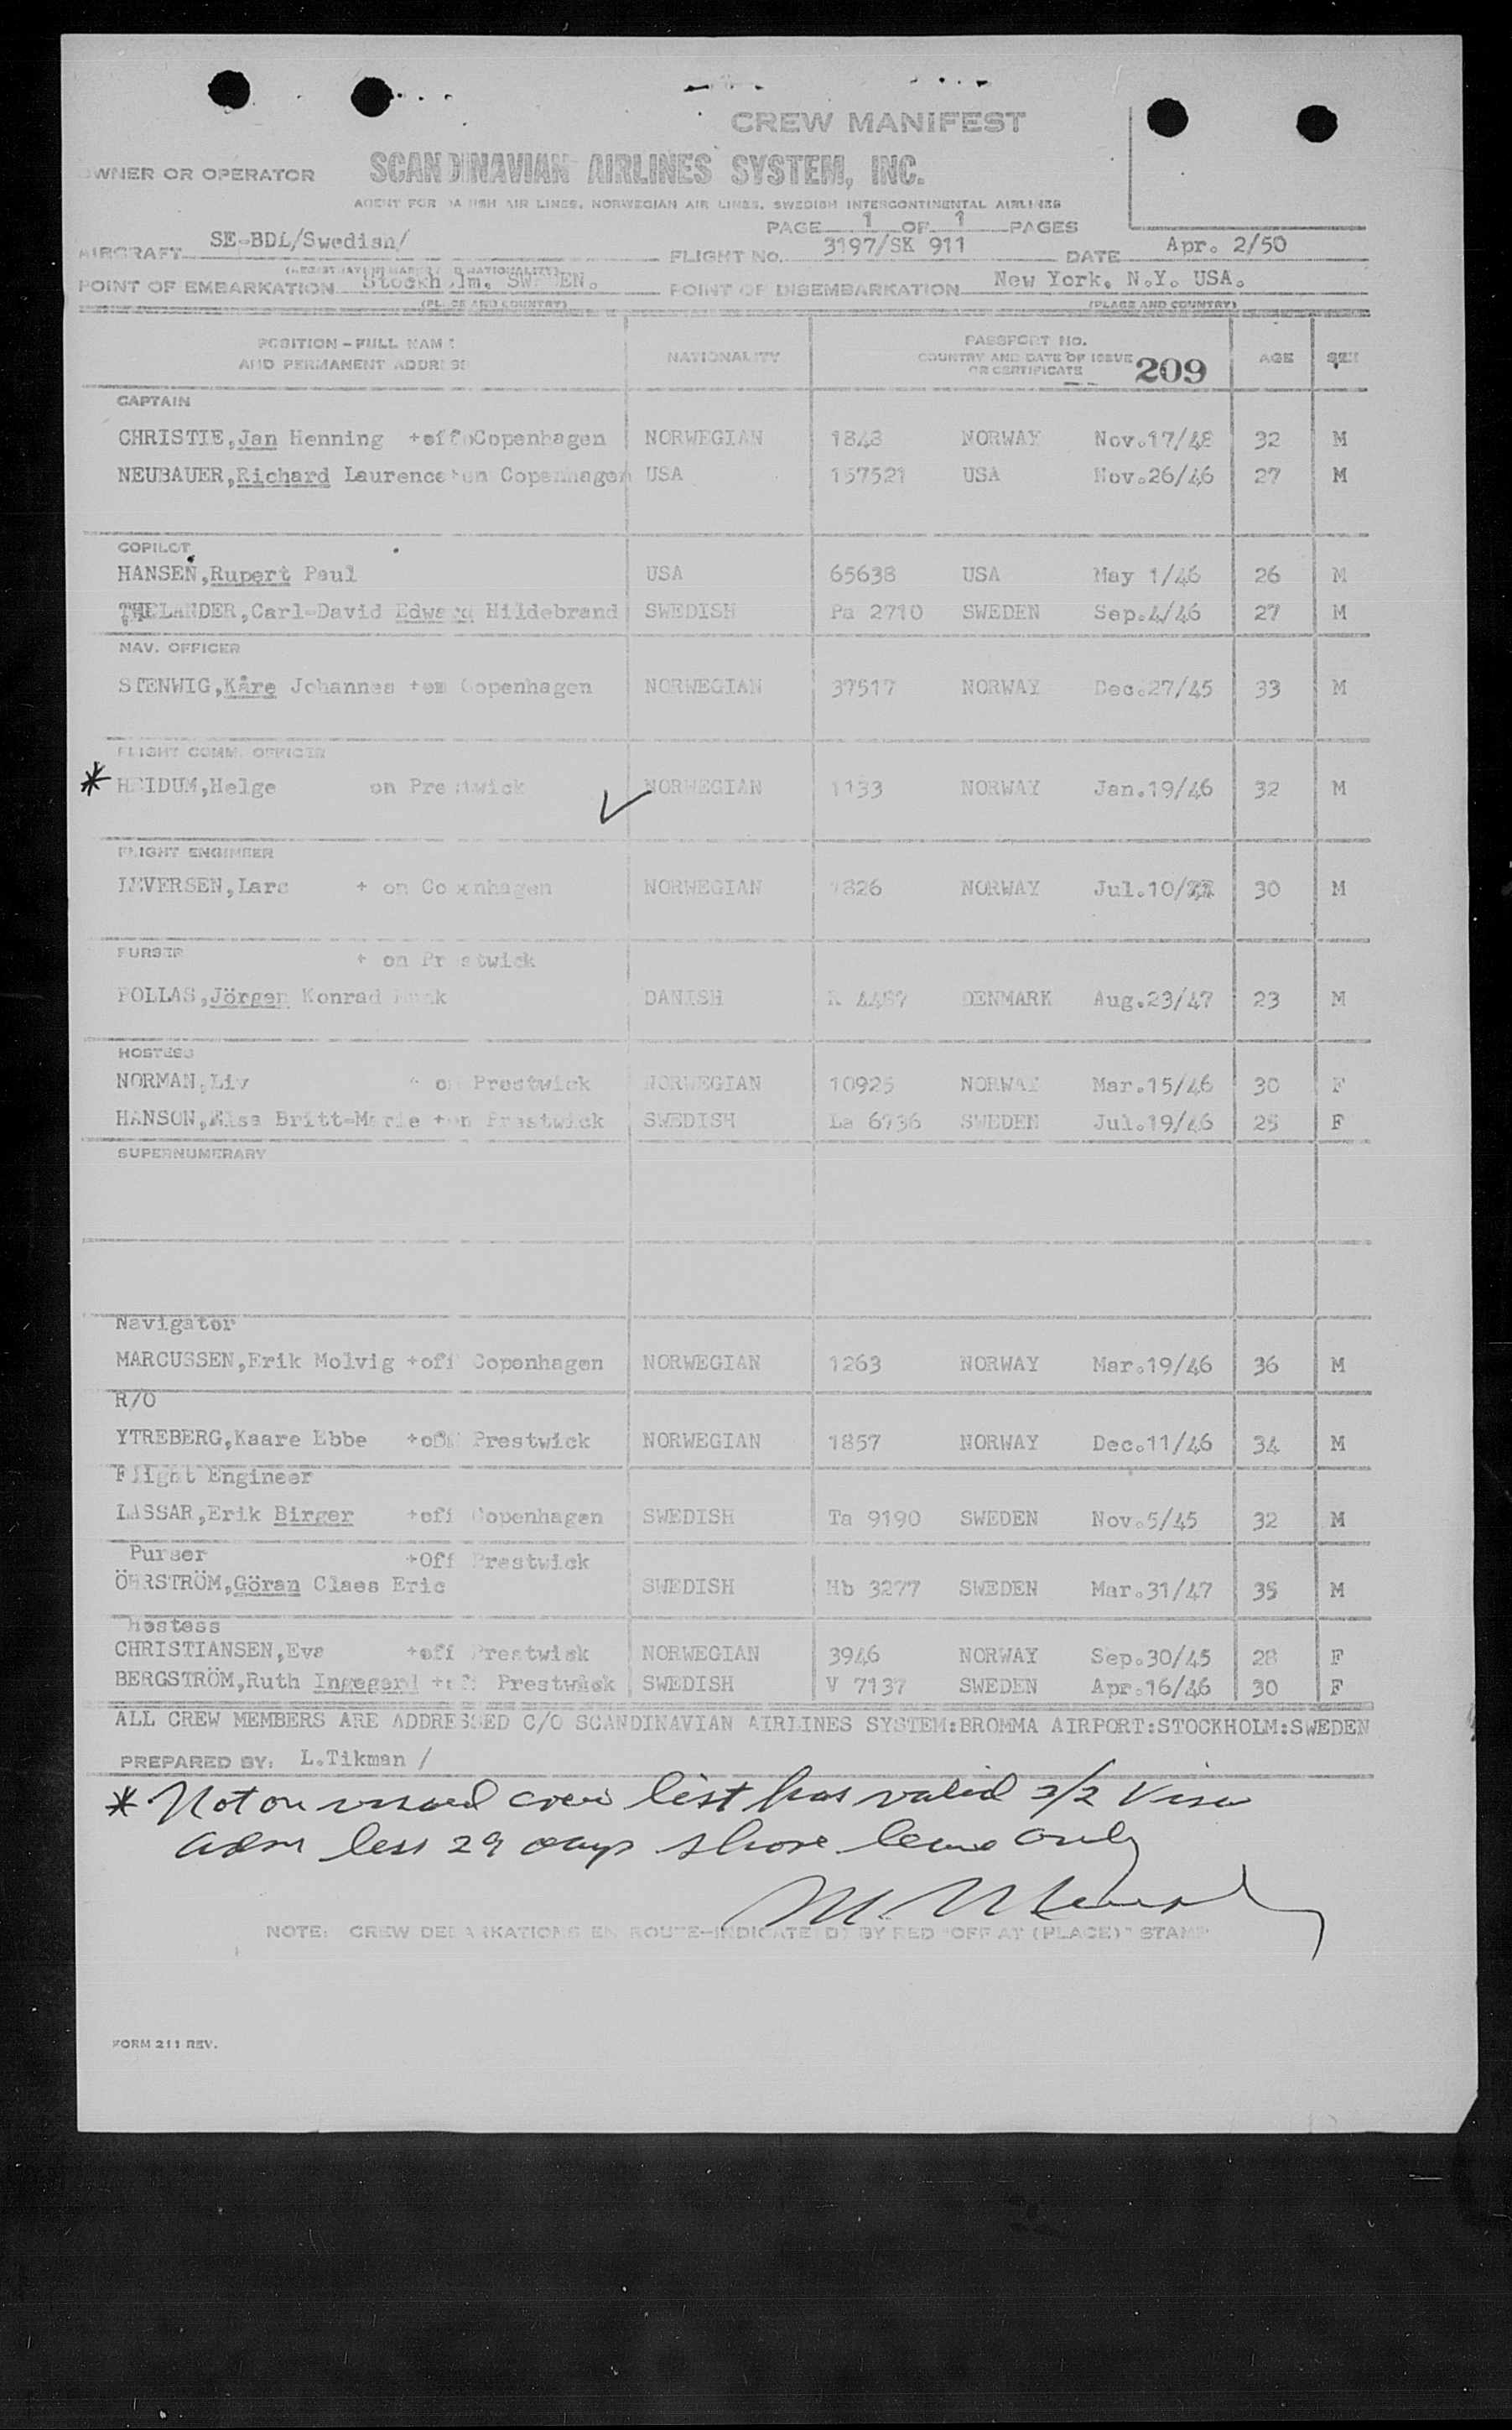 CREW MANIFEST
OWNER OR OPERATOR SCANDINAVIAN AIRLINES SYSTEM, INC.
AGENT FOR DANISH AIR LINES, NORWEGIAN AIR LINES, SWEDISH INTERCONTINENTAL AIRLINES
PAGE 1 OF 1 PAGES
AIRCRAFT SE-BDL/Swedish/ FLIGHT No. 3197/SK 911 DATE Apr. 2/50
(REGISTRATION MARKS AND NATIONALITY)
POINT OF EMBARKATION Stockholm. SWEDEN. POINT OF DISEMBARKATION New York. N.Y. USA.
(PLACE AND COUNTRY) (PLACE AND COUNTRY)
POSITION - FULL NAME AND PERMANENT ADDRESS NATIONALITY PASSPORT NO. COUNTRY AND DATE OF ISSUE OR CERTIFICATE 209 AGE SEX
CAPTAIN
CHRISTIE,Jan Henning +off Copenhagen NORWEGIAN 1848 NORWAY Nov.17/48 32 M
NEUBAUER,Richard Laurence+on Copenhagen USA 157521 USA Nov.26/46 27 M
COPILOT
HANSEN,Rupert Paul USA 65638 USA May 1/46 26 M
THELANDER,Carl-David Edward Hildebrand SWEDISH Pa 2710 SWEDEN Sep.4/46 27 M
NAV. OFFICER
STENWIG,Kåre Johannes +on Copenhagen NORWEGIAN 37517 NORWAY Dec.27/45 33 M
FLIGHT COMM. OFFICER
* HEIDUM,Helge on Prestwick ✓ NORWEGIAN 1133 NORWAY Jan.19/46 32 M
FLIGHT ENGINEER
LEVERSEN,Lars + on Copenhagen NORWEGIAN 1826 NORWAY Jul.10/ 30 M
PURSER + on Prestwick
POLLAS,Jörgen Konrad DANISH K 4487 DENMARK Aug.23/47 23 M
HOSTESS
NORMAN,Liv + on Prestwick NORWEGIAN 10925 NORWAY Mar.15/46 30 F
HANSON,Elsa Britt-Marie +on Prestwick SWEDISH La 6736 SWEDEN Jul.19/46 25 F
SUPERNUMERARY
Navigator
MARCUSSEN,Erik Molvig +off Copenhagen NORWEGIAN 1263 NORWAY Mar.19/46 36 M
R/O
YTREBERG,Kaare Ebbe +off Prestwick NORWEGIAN 1857 NORWAY Dec.11/46 34 M
Flight Engineer
LASSAR,Erik Birger +off Copenhagen SWEDISH Ta 9190 SWEDEN Nov.5/45 32 M
Purser +Off Prestwick
ÖHRSTRÖM,Göran Claes Eric SWEDISH Hb 3277 SWEDEN Mar.31/47 35 M
Hostess
CHRISTIANSEN,Eva +off Prestwick NORWEGIAN 3946 NORWAY Sep.30/45 28 F
BERGSTRÖM,Ruth Ingegerd +off Prestwick SWEDISH V 7137 SWEDEN Apr.16/46 30 F
ALL CREW MEMBERS ARE ADDRESSED C/O SCANDINAVIAN AIRLINES SYSTEM:BROMMA AIRPORT:STOCKHOLM:SWEDEN
PREPARED BY: L.Tikman /
* Not on visaed crew list has valid 3/2 Visa
Adm less 29 days shore leave only
NOTE: CREW DEBARKATIONS EN ROUTE-INDICATED BY RED "OFF AT (PLACE)" STAMP
FORM 211 REV.